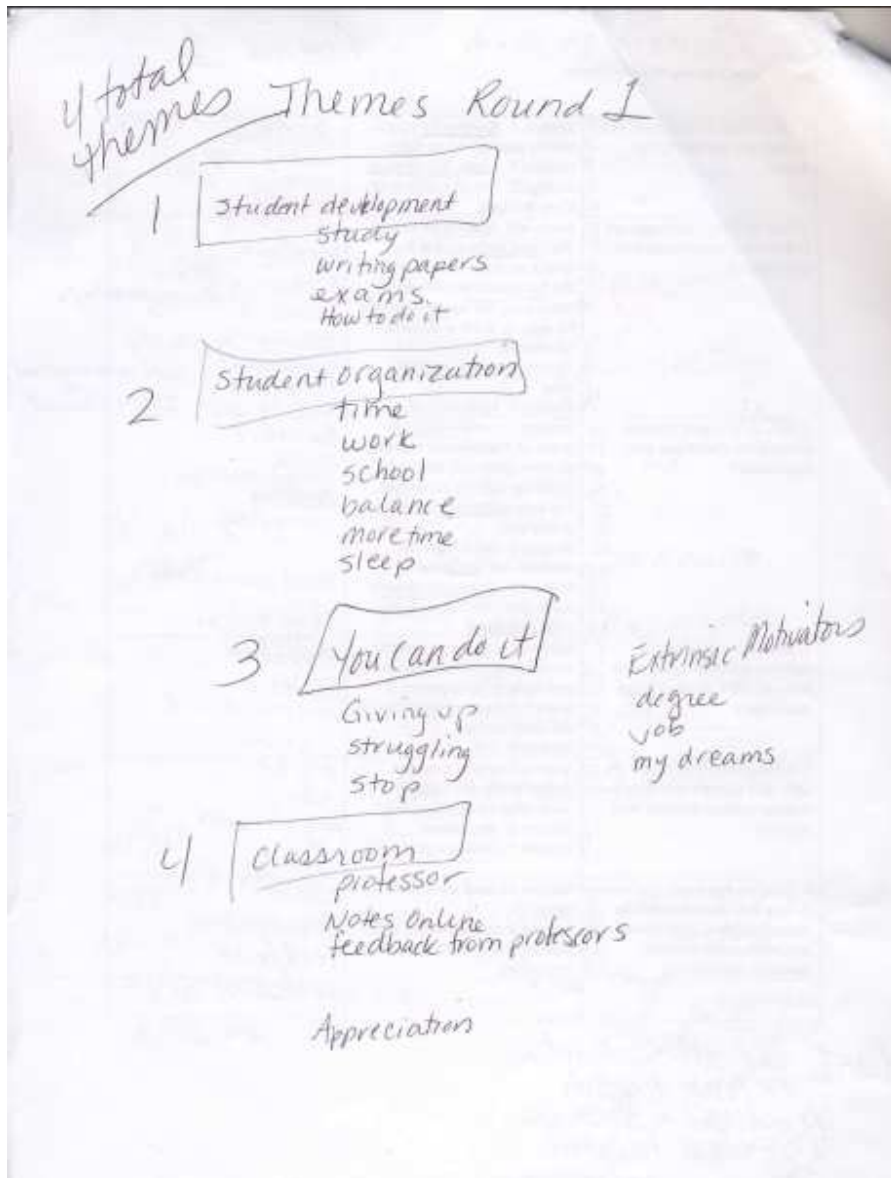 4 total
themes
Themes Round 1
1 Student development
study
writing papers
exams.
How to do it
2 Student organization
time
work
school
balance
more time
sleep
3 You can do it
Giving up
struggling
stop
Extrinsic Motivators
degree
job
my dreams
4 Classroom
professor
Notes Online
feedback from professors
Appreciation